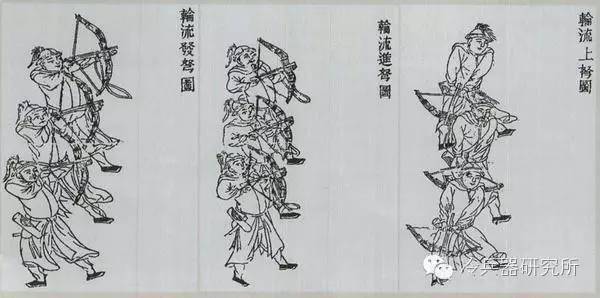 輪流上弩圖
輪流進弩圖
輪流發弩圖
冷兵器研究所